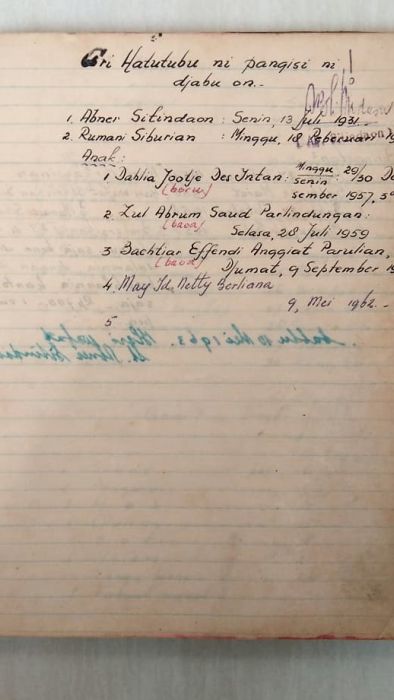 Ari Hatutubu ni pangisi ni
djabu on.-
1. Abner Sitindaon : Senin, 13 Juli 1931
2. Rumani Siburian : Minggu, 18 Pebruari
Anak :
1. Dahlia Tootje Des Intan : Minggu/Senin : 29/30 De
(boru) sember 1957,
2. Zul Abrum Saud Parlindungan :
(baoa) Selasa, 28 Juli 1959
3 Bachtiar Effendi Anggiat Parulian,
(baoa) Djumat, 9 September 19
4. May Ida Netty Berliana
9, Mei 1962.-
5